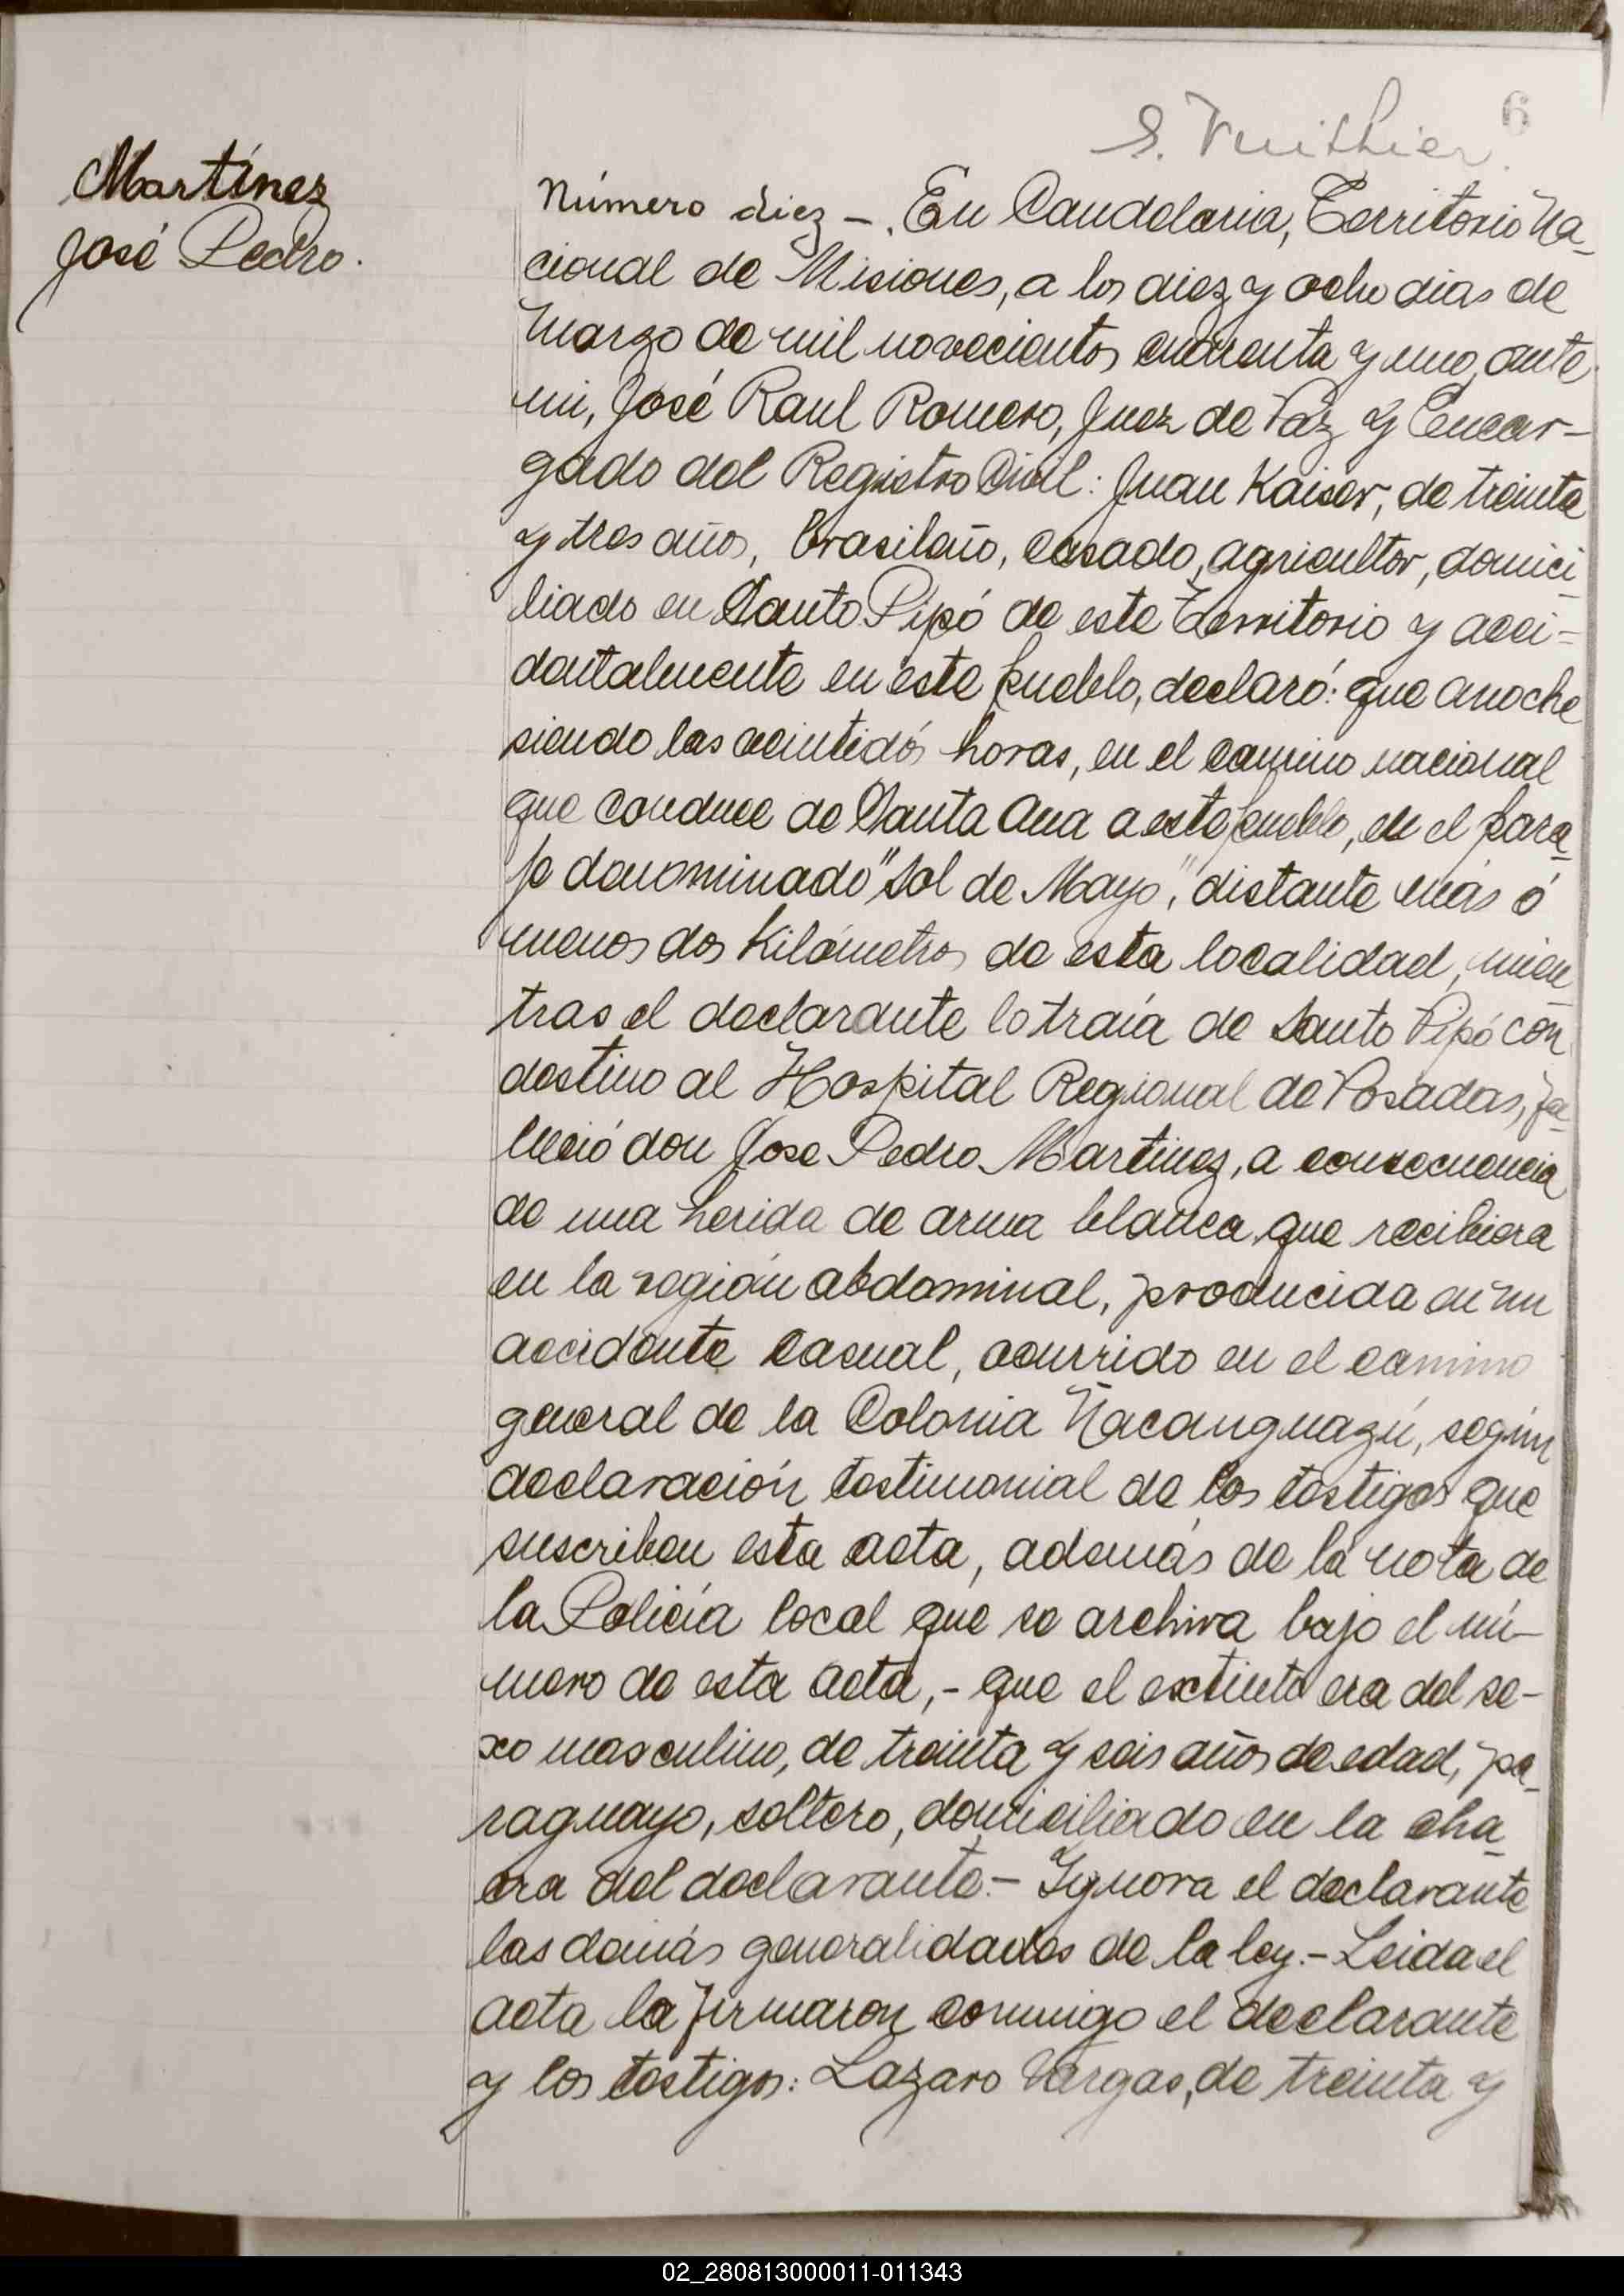 6
S. Vuithier
Martínez
José Pedro.
Número diez -. En Candelaria, Territorio Na-
cional de Misiones, a los diez y ocho dias de
Marzo de mil novecientos cuarenta y uno, ante
mi, José Raul Romero, Juez de Paz y Encar-
gado del Registro Civil: Juan Kaiser, de treinta
y tres años, brasileño, casado, agricultor, domici-
liado en Santo Pipó de este Territorio y acci=
dentalmente en este pueblo, declaró: que anoche
siendo las veintidós horas, en el camino nacional
que conduce de Santa Ana a este pueblo, en el para-
je denominado "Sol de Mayo", distante más ó
menos dos Kilómetros de esta localidad, mien-
tras el declarante lo traía de Santo Pipó con
destino al Hospital Regional de Posadas, fa-
lleció don José Pedro Martinez, a consecuencia
de una herida de arma blanca que recibiera
en la región abdominal, producida en un
accidente casual, ocurrido en el camino
general de la Colonia Ñacanguazú, según
declaración testimonial de los testigos que
suscriben esta acta, además de la nota de
la Policía local que se archiva bajo el nú-
mero de esta acta,- que el extinto era del se-
xo masculino, de treinta y seis años de edad, pa-
raguayo, soltero, domiciliado en la cha-
cra del declarante.- Ignora el declarante
las demás generalidades de la ley.- Leida el
acta la firmaron conmigo el declarante
y los testigos: Lazaro Vargas, de treinta y
02_280813000011-011343